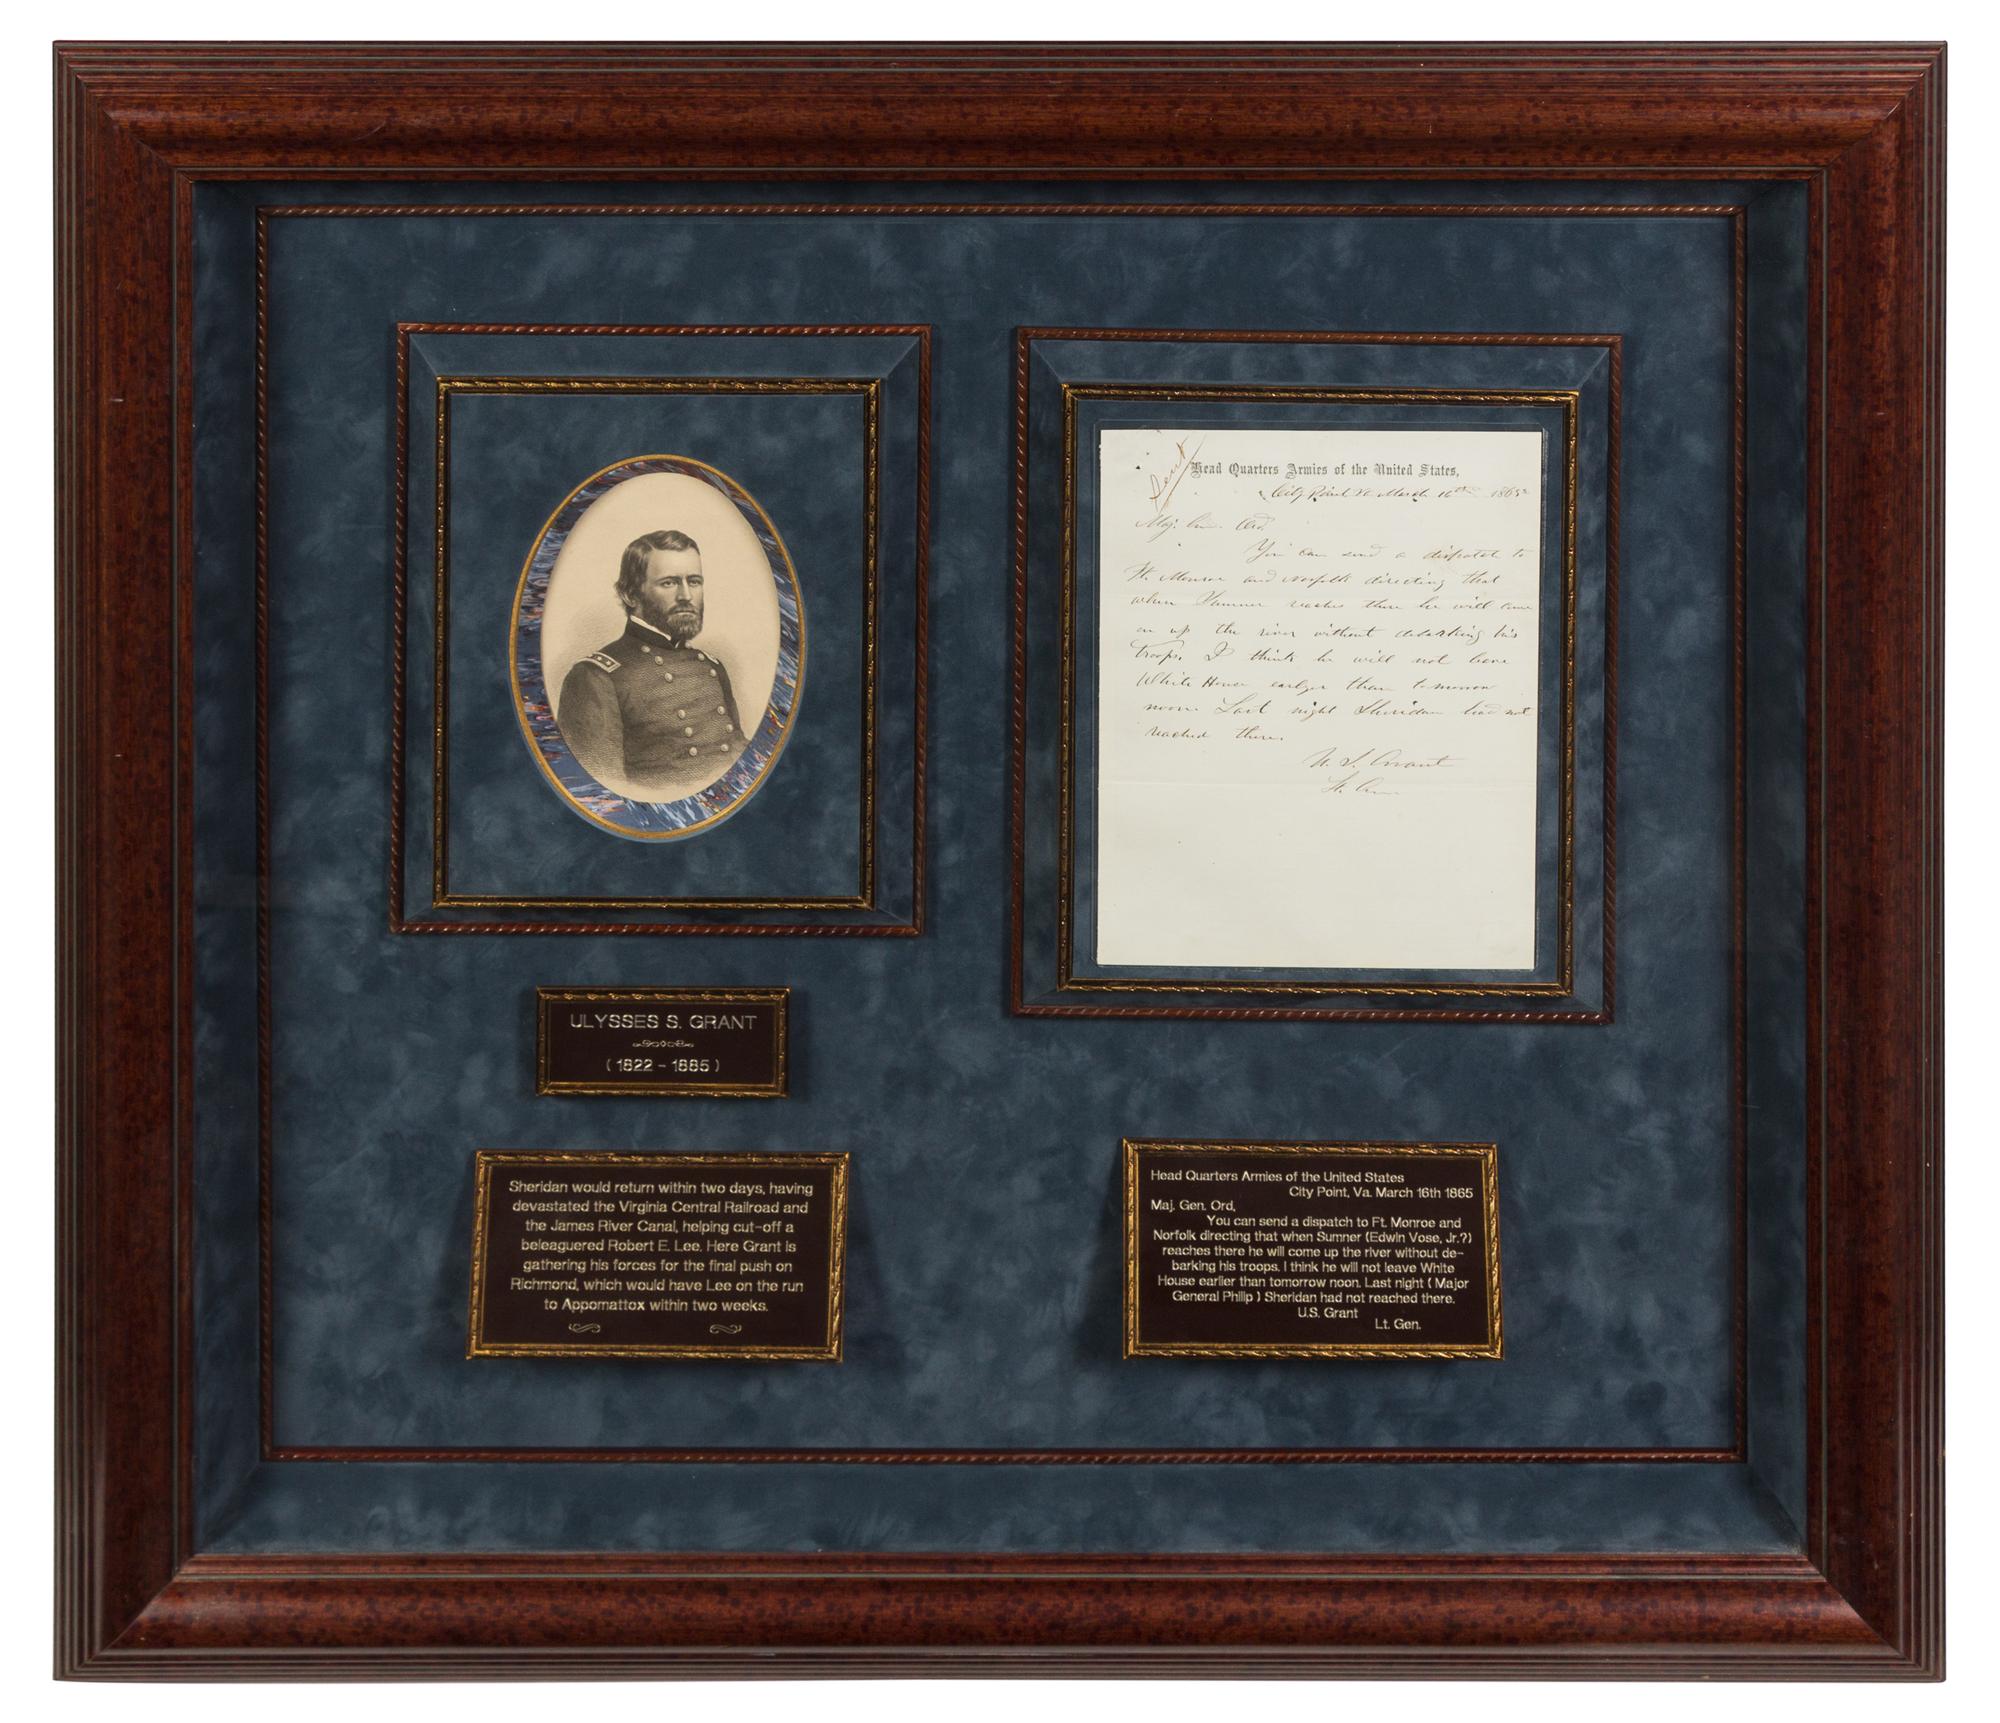 Sent
Head Quarters Armies of the United States,
City Point Va. March 16th 1865
Maj. Gen. Ord,
You can send a dispatch to
Ft. Monroe and Norfolk directing that
when Sumner reaches there he will come
on up the river without debarking his
troops. I think he will not leave
White House earlyer than tomorrow
noon. Last night Sheridan had not
reached there.
U. S. Grant
Lt. Gen.
ULYSSES S. GRANT
( 1822 - 1885 )
Sheridan would return within two days, having
devastated the Virginia Central Railroad and
the James River Canal, helping cut-off a
beleaguered Robert E. Lee. Here Grant is
gathering his forces for the final push on
Richmond, which would have Lee on the run
to Appomattox within two weeks.
Head Quarters Armies of the United States
City Point, Va. March 16th 1865
Maj. Gen. Ord,
You can send a dispatch to Ft. Monroe and
Norfolk directing that when Sumner (Edwin Vose, Jr.?)
reaches there he will come up the river without de-
barking his troops. I think he will not leave White
House earlier than tomorrow noon. Last night ( Major
General Philip ) Sheridan had not reached there.
U.S. Grant
Lt. Gen.